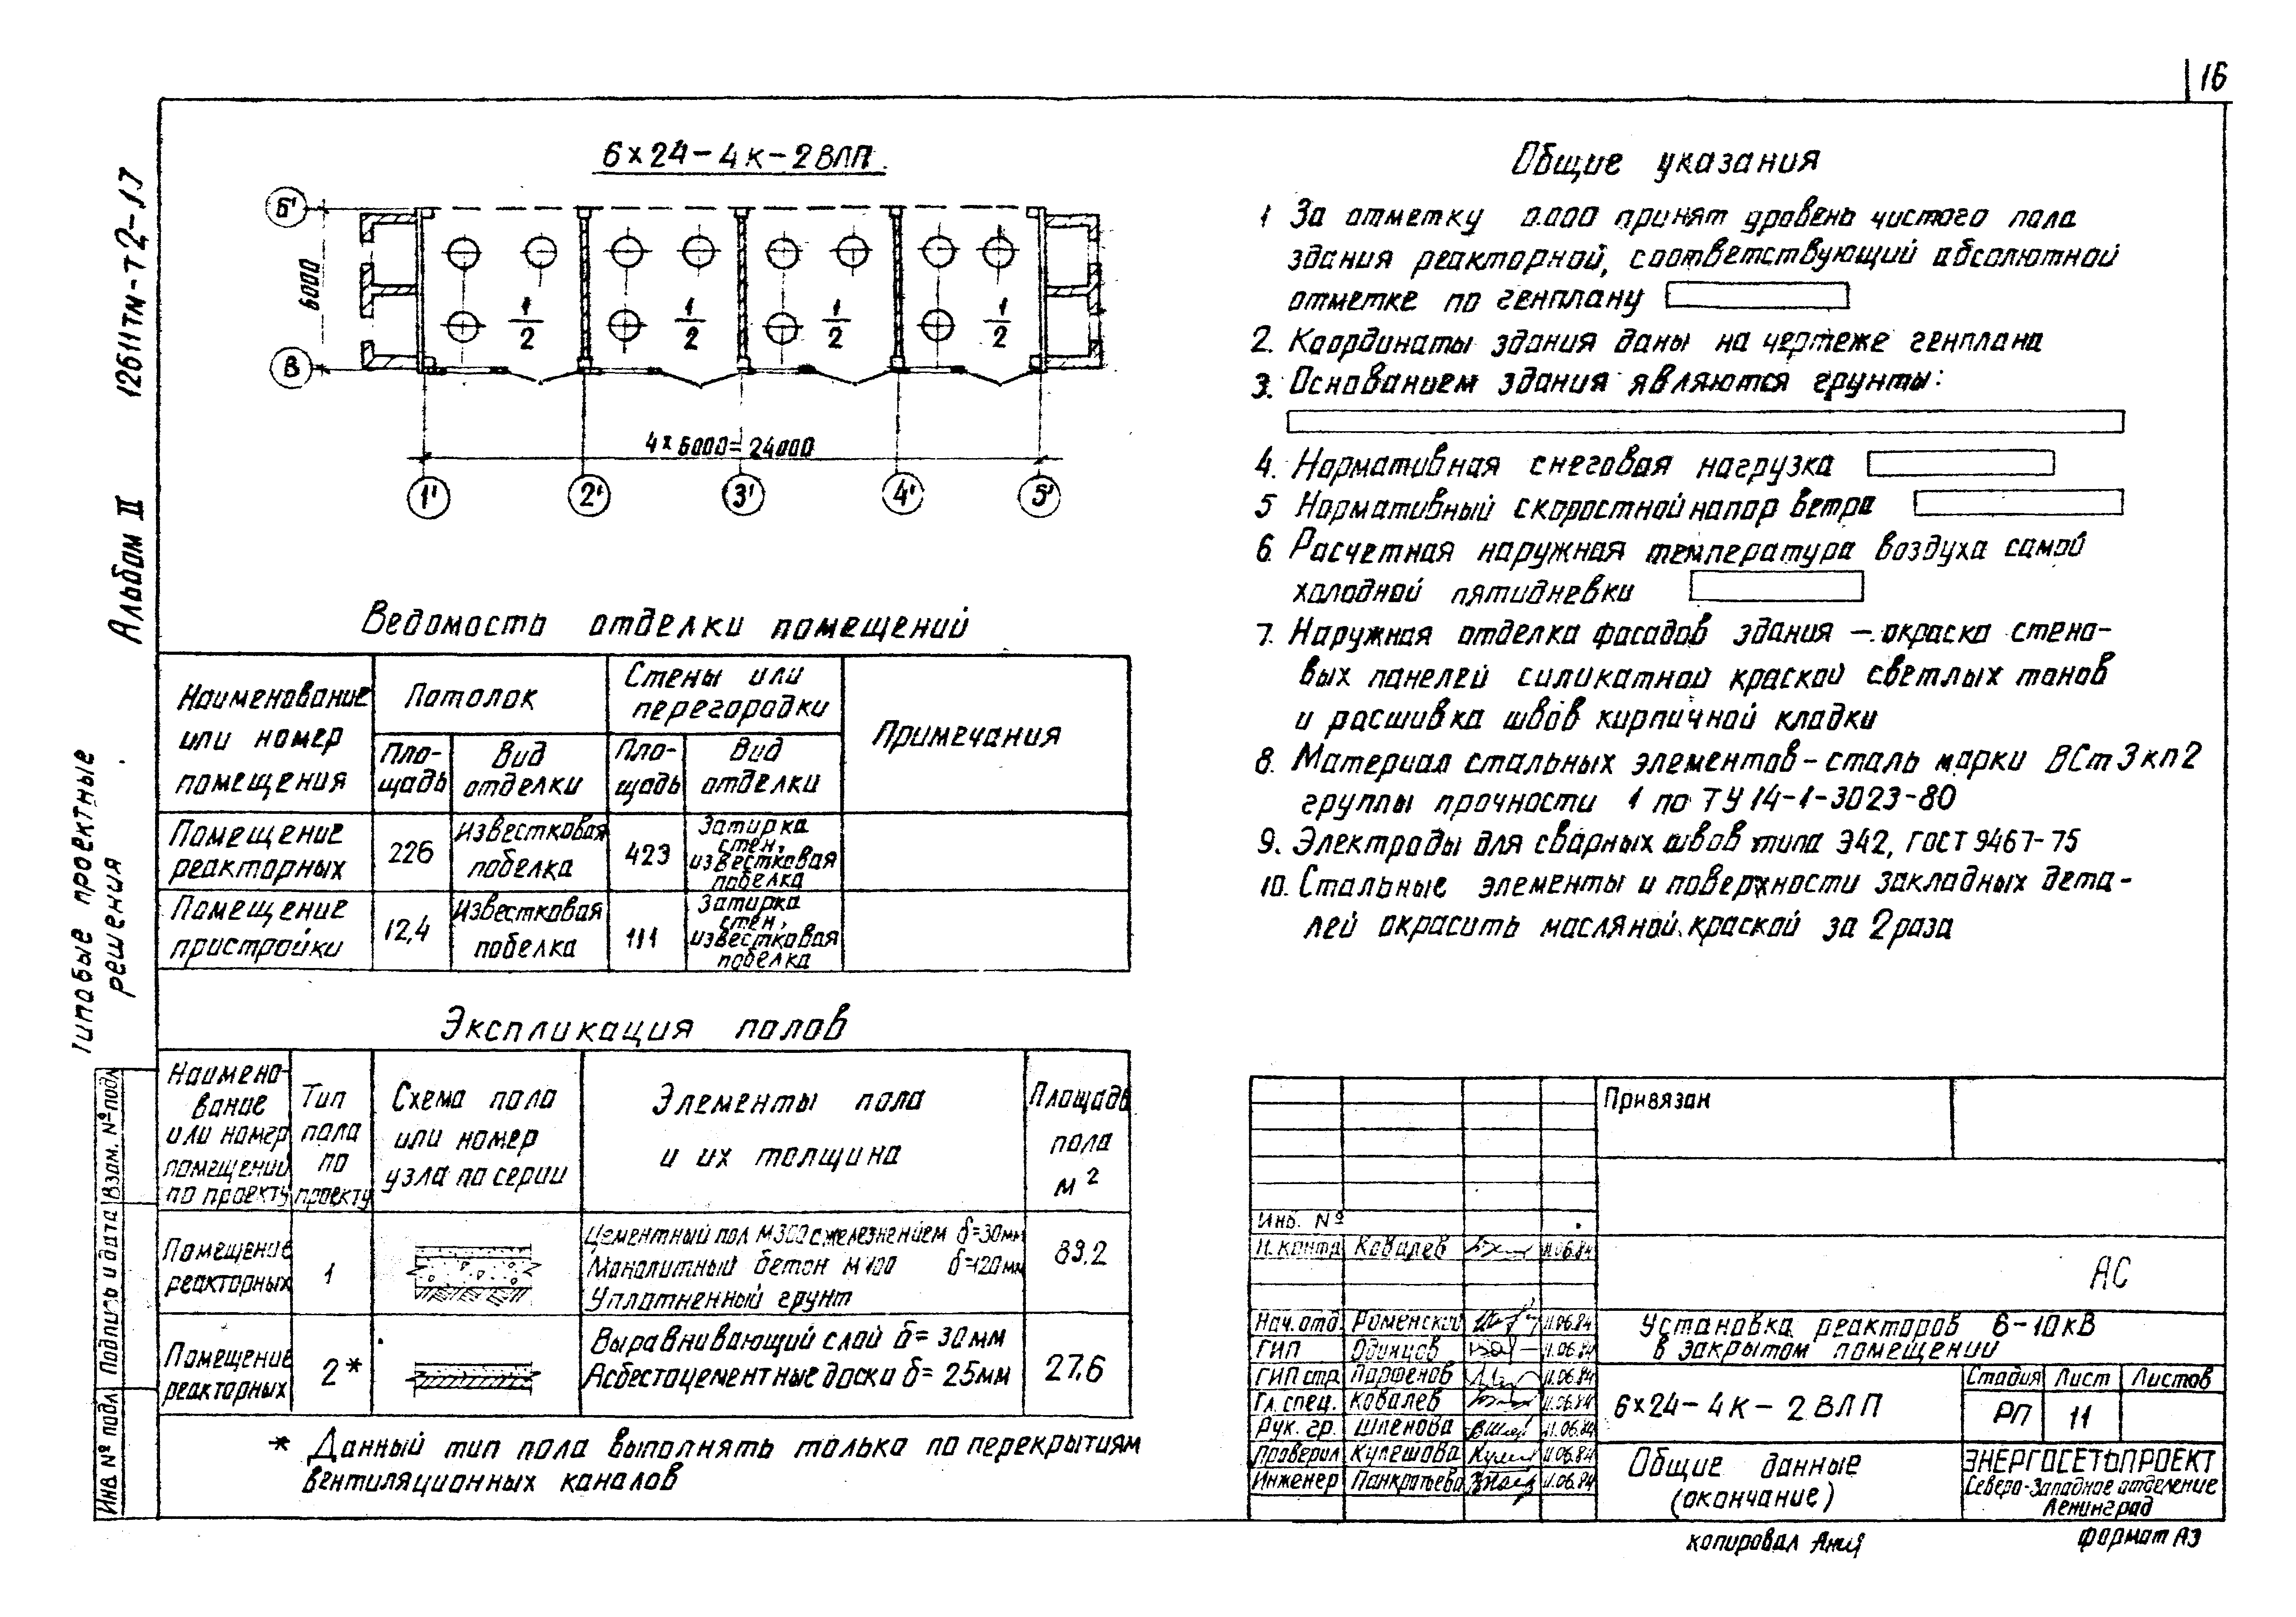 16
12611тм-т2-17
Альбом II
Типовые проектные
решения
6×24-4К-2ВЛП
Б'
В
6000
1
2
1
2
1
2
1
2
4×6000=24000
1' 2' 3' 4' 5'
Ведомость отделки помещений
Наименование
или номер
помещения
Потолок
Стены или
перегородки
Примечания
Пло-
щадь
Вид
отделки
Пло-
щадь
Вид
отделки
Помещение
реакторных
226
Известковая
побелка
423
Затирка
стен,
известковая
побелка
Помещение
пристройки
12,4
Известковая
побелка
111
Затирка
стен,
известковая
побелка
Экспликация полов
Наимено-
вание
или номер
помещений
по проекту
Тип
пола
по
проекту
Схема пола
или номер
узла по серии
Элементы пола
и их толщина
Площадь
пола
м²
Помещение
реакторных
1
Цементный пол М300 с железнением δ=30мм
Монолитный бетон М100 δ=120мм
Уплотненный грунт
83.2
Помещение
реакторных
2*
Выравнивающий слой δ=30мм
Асбестоцементные доски δ=25мм
27.6
* Данный тип пола выполнять только по перекрытиям
вентиляционных каналов
Общие указания
1 За отметку 0.000 принят уровень чистого пола
здания реакторной, соответствующий абсолютной
отметке по генплану
2. Координаты здания даны на чертеже генплана
3. Основанием здания являются грунты:
4. Нормативная снеговая нагрузка
5 Нормативный скоростной напор ветра
6 Расчетная наружная температура воздуха самой
холодной пятидневки
7. Наружная отделка фасадов здания – окраска стено-
вых панелей силикатной краской светлых тонов
и расшивка швов кирпичной кладки
8. Материал стальных элементов – сталь марки ВСт3кп2
группы прочности 1 по ТУ 14-1-3023-80
9. Электроды для сварных швов типа Э42, ГОСТ 9467-75
10. Стальные элементы и поверхности закладных дета-
лей окрасить масляной краской за 2 раза
Привязан
Инв. №
Н.контр. Ковалев 11.06.84
АС
Нач.отд. Роменский 11.06.84
ГИП Одинцов 11.06.84
ГИП стр. Парфенов 11.06.84
Гл.спец. Ковалев 11.06.84
Рук. гр. Шленова 11.06.84
Проверил Кулешова 11.06.84
Инженер Панкратьева 11.06.84
Установка реакторов 6-10кВ
в закрытом помещении
6×24-4К-2ВЛП
Стадия Лист Листов
РП 11
Общие данные
(окончание)
ЭНЕРГОСЕТЬПРОЕКТ
Северо-Западное отделение
Ленинград
копировал
формат А3
Инв № подл Подпись и дата Взам. № подл